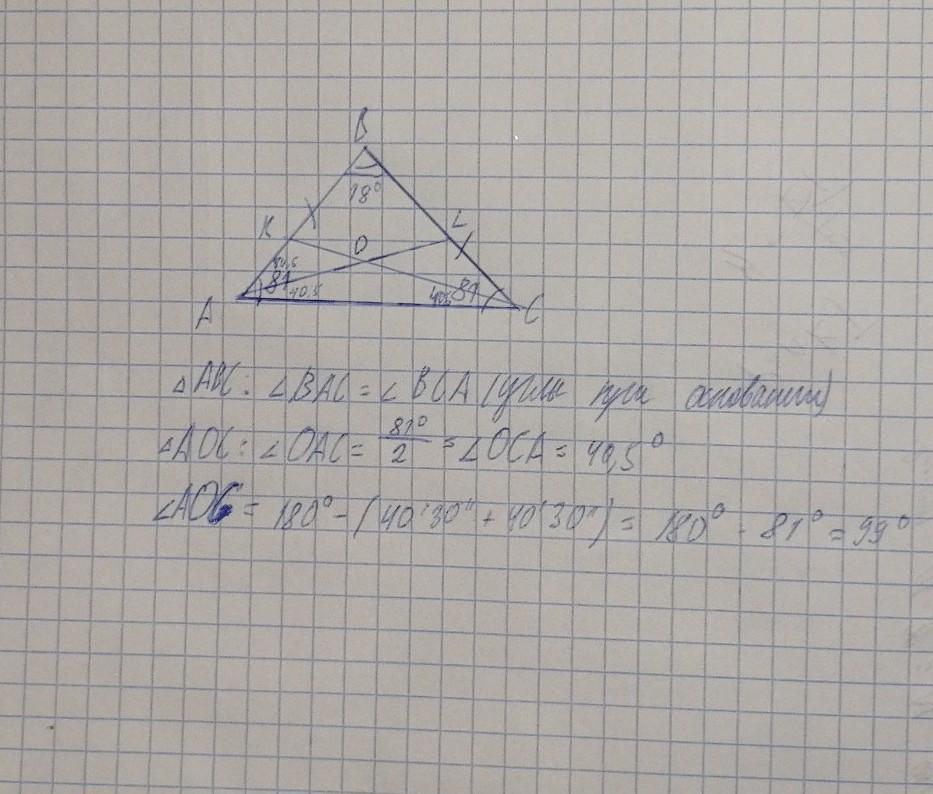 B
18°
K L
O
40,5
81 81
40,5 40,5
A C
△ABC: ∠BAC = ∠BCA (углы при основании)
△AOC: ∠OAC = 81°/2 = ∠OCA = 40,5°
∠AOC = 180° - (40'30'' + 40'30'') = 180° - 81° = 99°